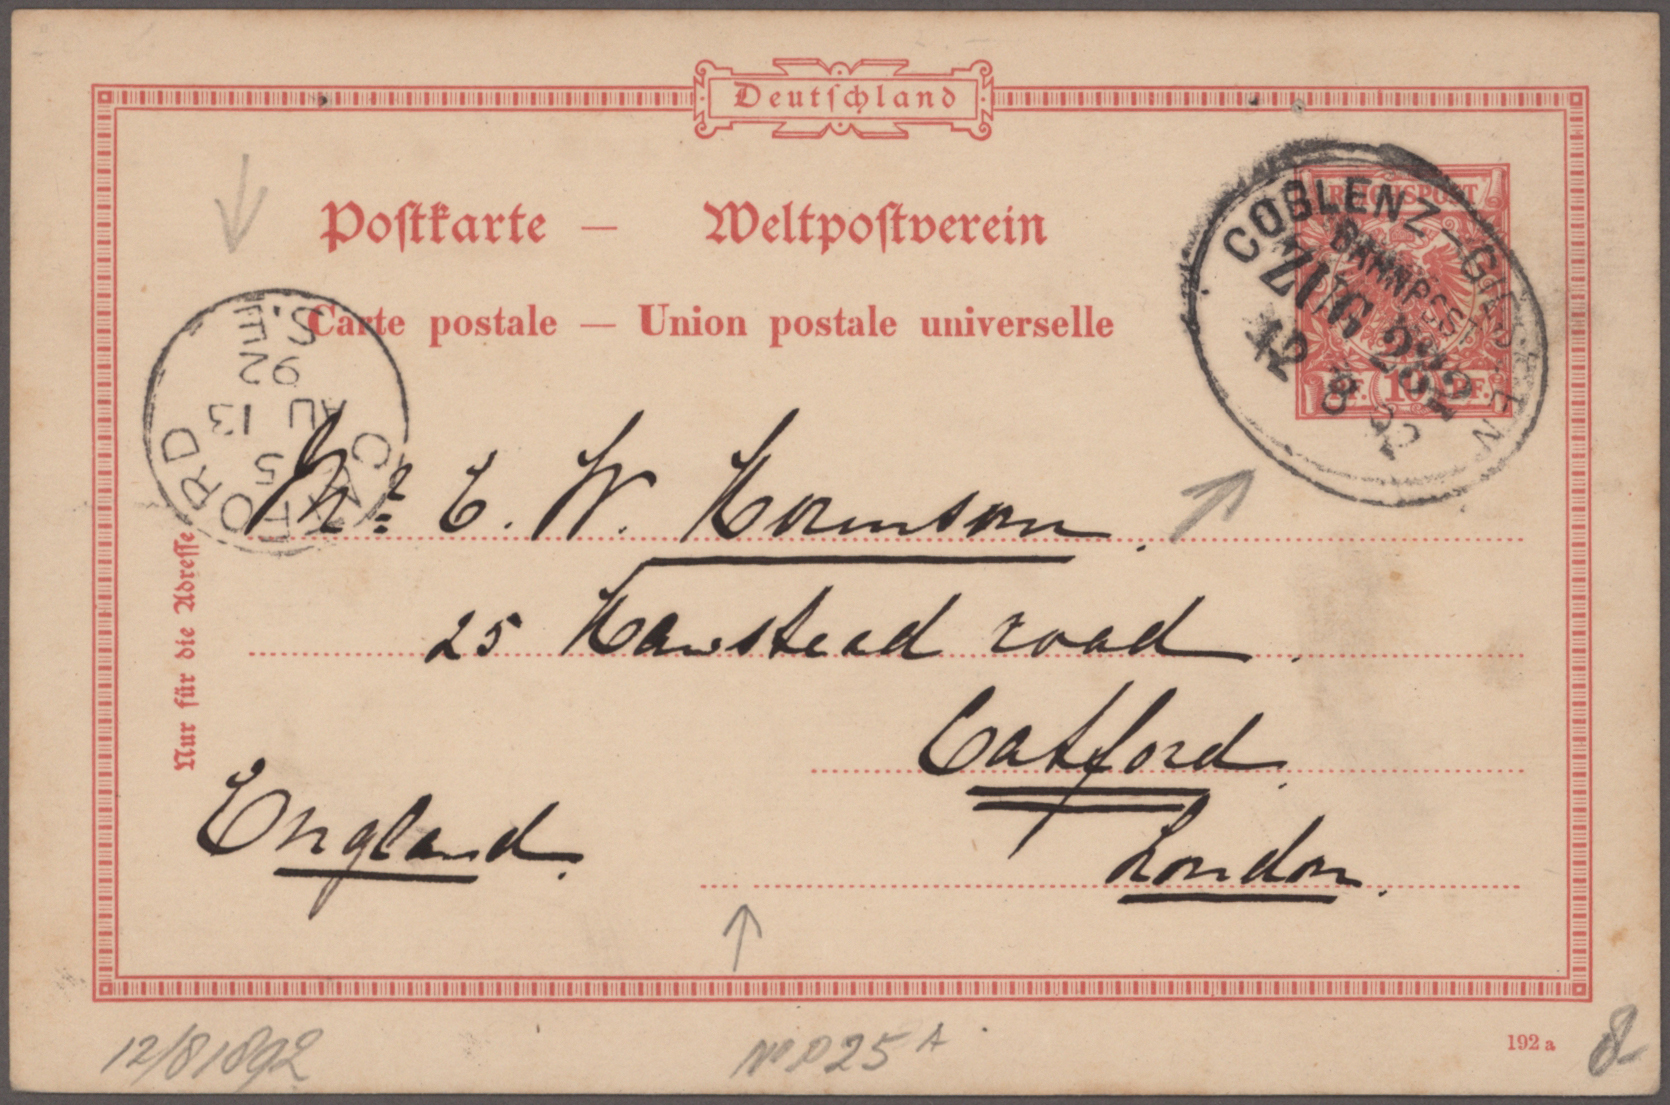 Deutschland
Postkarte — Weltpostverein
Carte postale — Union postale universelle
REICHSPOST
10 PF.
COBLENZ-GIESSEN
BAHNPOST
ZUG 282
12 8 92
CATFORD
5
AU 13
92
S.E
Mr. E. W. Hornson.
25 Hawstead road.
Catford.
London.
England.
Nur für die Adresse
12/8 1892
P25 A
192 a
8-